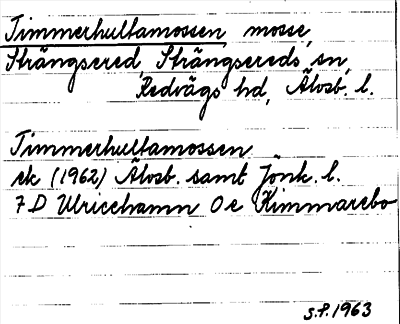 Timmerhultamossen, mosse,
Strängsered, Strängsereds sn,
Redvägs hd, Älvsb. l.
Timmerhultamossen
ek (1962) Älvsb. samt Jönk. l.
7 D Ulricehamn 0e Himmarebo
S.P. 1963